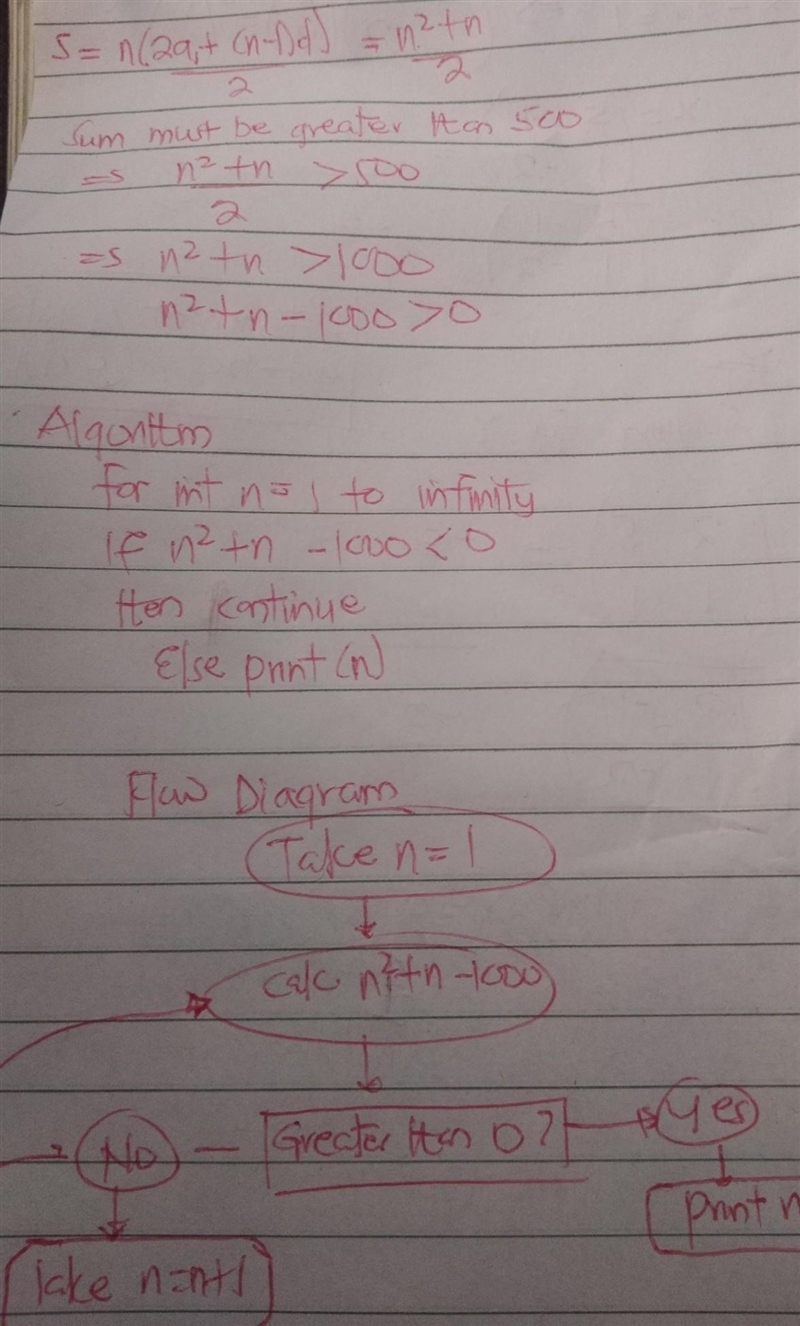 S = n(2a₁ + (n-1)d) / 2 = n² + n / 2
Sum must be greater than 500
=> n² + n / 2 > 500
=> n² + n > 1000
n² + n - 1000 > 0
Algorithm
For int n = 1 to infinity
If n² + n - 1000 < 0
then continue
Else print (n)
Flow Diagram
Take n = 1
Calc n² + n - 1000
No
Greater than 0?
Yes
print n
Take n = n+1